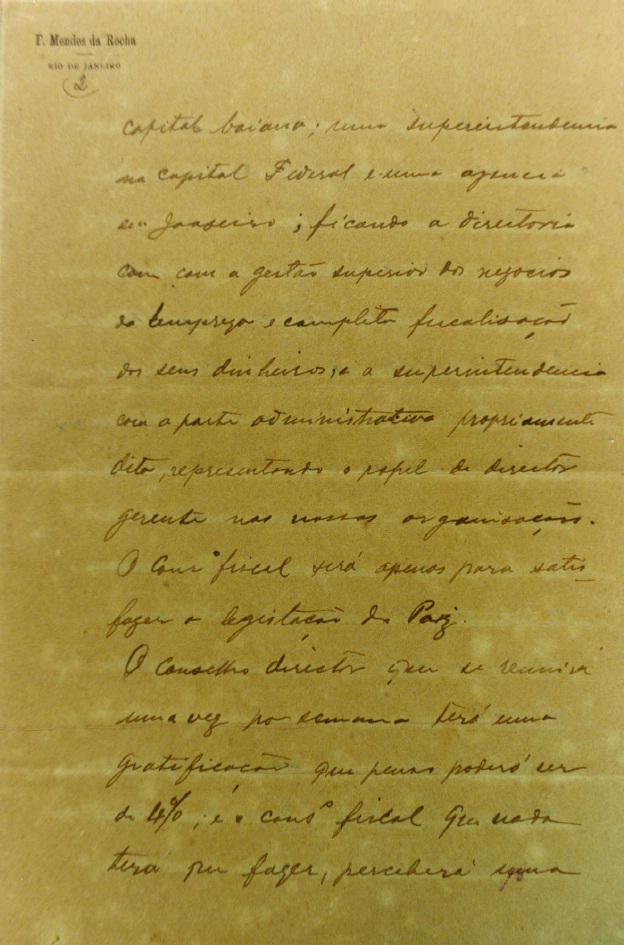 F. Mendes da Rocha
RIO DE JANEIRO
2
capital baiana; uma superintendencia
na capital Federal e uma agencia
em Joaseiro; ficando a directoria
com com a gestão superior dos negocios
da Empreza e completa fiscalisação
dos seus dinheiros; e a superintendencia
com a parte administrativa propriamente
dita, representando o papel de director
gerente nas nossas organisações.
O Consº fiscal será apenas para satis-
fazer a legislação do Paiz.
O Conselho director que se reunirá
uma vez por semana terá uma
gratificação que penso poderá ser
de 4%; e o consº fiscal que nada
terá que fazer, perceberá uma